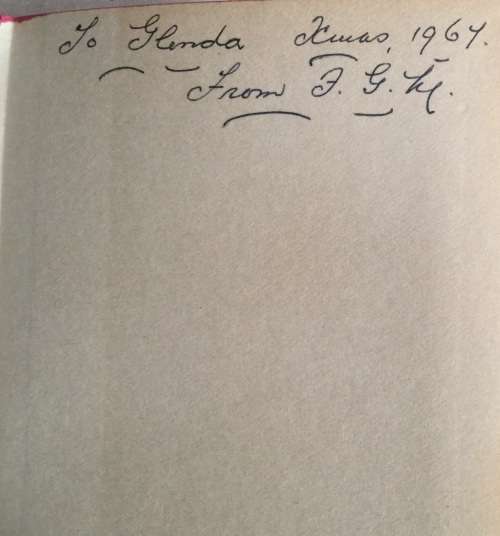 To Glenda Xmas, 1964.
From F. G. M.